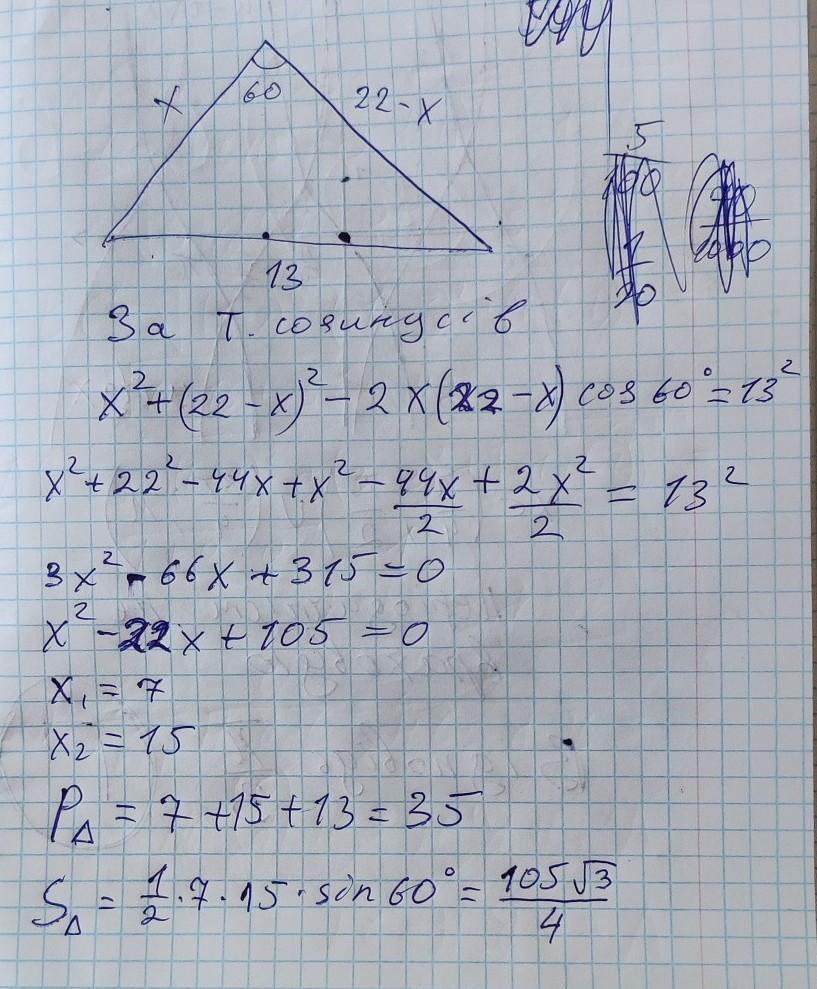 x
60
22-x
13
За т. косинусів
x² + (22 - x)² - 2x(22 - x) cos 60° = 13²
x² + 22² - 44x + x² - 44x/2 + 2x²/2 = 13²
3x² - 66x + 315 = 0
x² - 22x + 105 = 0
x₁ = 7
x₂ = 15
P△ = 7 + 15 + 13 = 35
S△ = 1/2 · 7 · 15 · sin 60° = 105√3/4